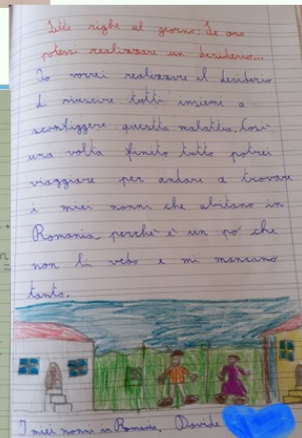 Sette righe al giorno: Se ora
potessi realizzare un desiderio...
Io vorrei realizzare il desiderio
di riuscire tutti insieme a
sconfiggere questta malattia. Così
una volta finito tutto potrei
viaggiare per andare a trovare
i miei nonni che abitano in
Romania, perchè è un pó che
non li vedo e mi mancano
tanto.
I miei nonni in Romania. Davide